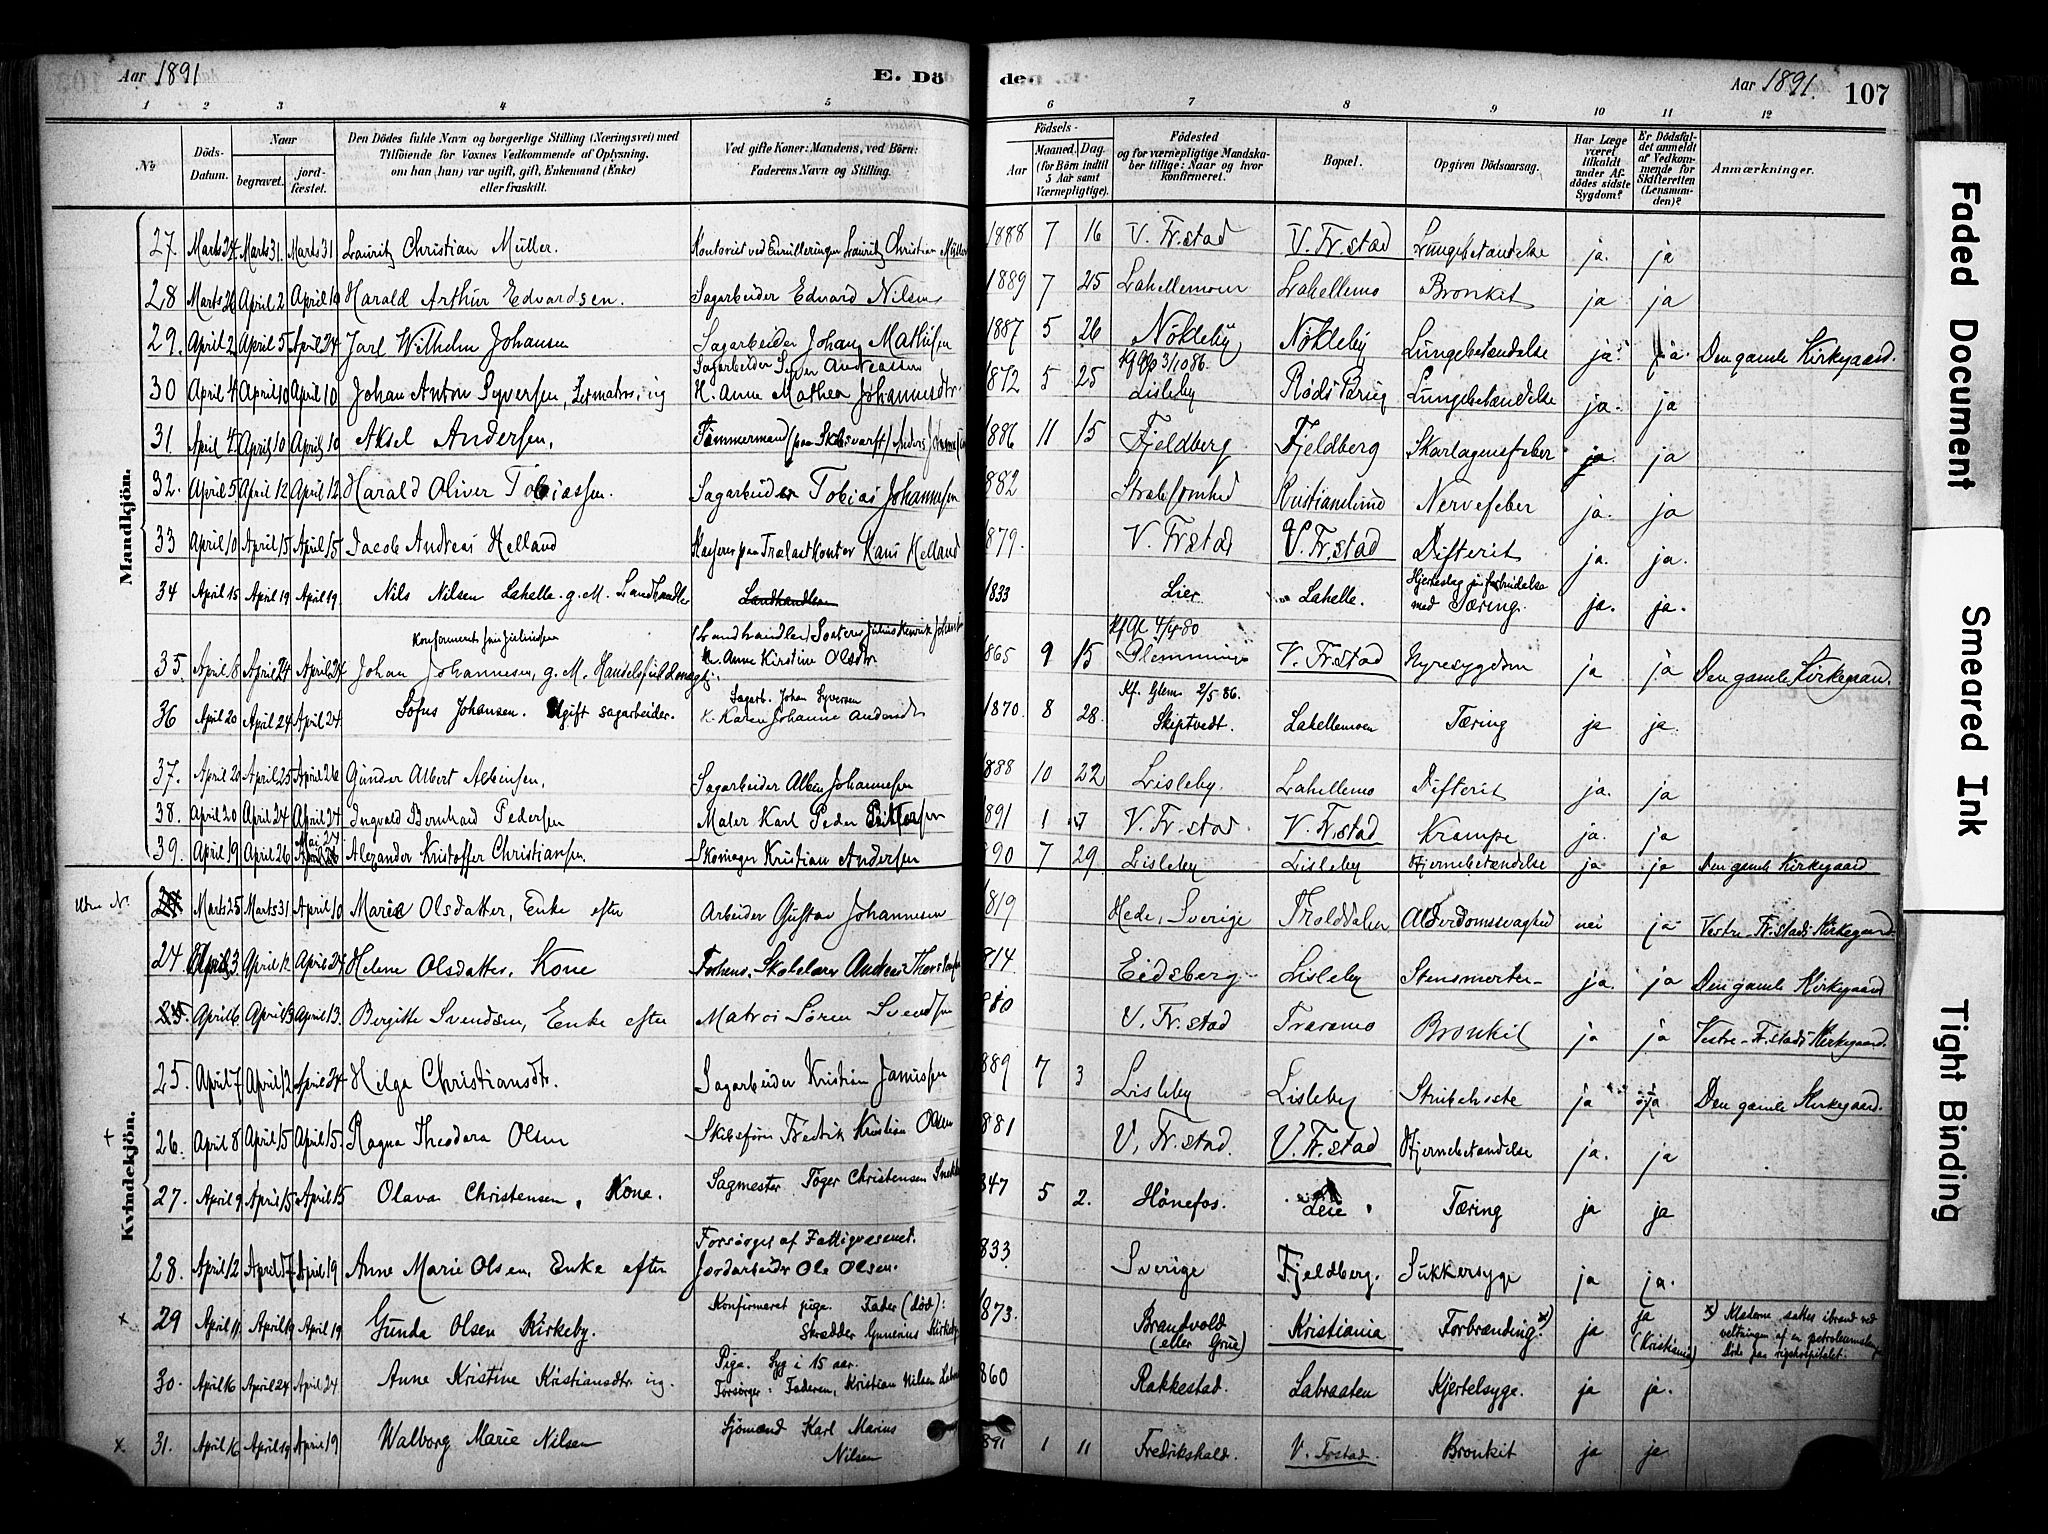 Aar 1891 E. Dö
de. Aar 1891. 107
1 2 3 4 5 6 7 8 9 10 11 12
No Döds-Datum. Naar begravet. jord-fæstet. Den Dödes fulde Navn og borgerlige Stilling (Næringsvei) med Tilföiende for Voxnes Vedkommende af Oplysning. om han (hun) var ugift, gift, Enkemand (Enke) eller fraskilt. Ved gifte Koner: Mandens, ved Börn: Faderens Navn og Stilling. Födsels- Aar Maaned. Dag. (for Börn indtil 5 Aar samt Værnepligtige). Födested og for værnepligtige Mandska-ber tillige: Naar og hvor konfirmeret. Bopæl. Opgiven Dödsaarsag. Har Læge været tilkaldt under Af-dödes sidste Sygdom? Er Dödsfal-det anmeldt af Vedkom-mende for Skifteretten (Lensman-den)? Anmærkninger.
Mandkjön.
27. Marts 24. Marts 31. Marts 31 Lauritz Christian Müller. Kontorist ved Lauritz Christian Müller 1888 7 16 V. Fr.stad V. Fr.stad Lungebetændelse ja. ja
28 Marts 26 April 2 April 19 Harald Arthur Edvardsen. Sagarbeider Edvard Nilsen 1889 7 25 Lahellemoen Lahellemo Bronkit ja ja
29. April 2 April 5 April 24 Jarl Wilhelm Johansen Sagarbeider Johan Mathisen 1887 5 26 Nökleby Nökleby Lungebetændelse ja ja. Den gamle Kirkegaard.
Sagarbeider Syver Andreassen 3/10 86.
30 April 4 April 10 April 10 Johan Anton Syversen, Letmatros, ug H. Anne Mathea Johannesdtr 1872 5 25 Lisleby Röds Brug Lungebetændelse ja. ja
31. April 4. April 10 April 10 Aksel Andersen, Tömmermand (paa Skibsværft) Anders 1886 11 15 Fjeldberg Fjeldberg Skarlagensfeber ja ja
32. April 5. April 12 April 12 Harald Oliver Tobiassen. Sagarbeider Tobias Johannesen 882 Kristianslund Nervefeber ja. ja
33 April 10 April 15 April 15 Jacob Andreas Helland Kasserer paa Trælastkontor Hans Helland 1879. V. Frstad V. Fr.stad Difterit ja. ja.
34 April 15 April 19 April 19. Nils Nilsen Lahelle. g. M. Landhandler 1833 Lier Lahelle. Hjerteslag i forbindelse med Tæring. ja. ja.
4/4 80
35. April 8 April 24 April 24 Johan Johannesen, g. M. Handelsfuldmægtig. K. Anne Kirstine Olsdtr 865 9 15 Glemminge V. Fr.stad Nyresygdom ja ja Den gamle Kirkegaard.
Sagarb. Johan Syversen Kf. Glem. 2/5 86.
36 April 20 April 24 April 24 Sofus Johansen. Ugift sagarbeider. K. Karen Johanne Andersdtr 1870. 8 28. Skiptvedt. Lahellemoen Tæring ja ja.
37. April 20 April 25 April 26 Gunder Albert Albinsen. Sagarbeider Albin Johannesen 888 10 22 Lisleby. Lahellemo Difterit ja. ja
38. April 20 April 24 April 24 Ingvald Bernhard Pedersen Maler Karl Peder 891 1 V. Fr.stad. V. Fr.stad Krampe ja. ja
39. April 19 April 26 Mai 27 Alexander Kristoffer Christiansen. Skomager Kristian Andersen 890 7 29 Lisleby Lisleby Hjernebetændelse ja ja Den gamle Kirkegaard
Kvindekjön.
Uden No. Marts 25 Marts 31 April 10 Maria Olsdatter, Enke efter Arbeider Gustav Johannesen 1819 Hede, Sverige Trolddalen Alderdomssvaghed nei ja Vestre-Fr.stads Kirkegaard.
24 April 3 April 12 April 24 Helene Olsdatter, Kone Forhens. Skolelærer Andreas Thorstensen 814 Eidsberg Lisleby Stensmerter ja. ja Den gamle Kirkegaard
25. April 6. April 13 April 13. Bergitte Svendsen, Enke efter Matros Sören Svendsen 810 V. Fr.stad Traramo Bronkit ja ja Vestre-Fr.stads Kirkegaard.
25. April 7 April 12 April 24 Hilga Christiansdtr. Sagarbeider Kristian Janussen 889 7 3 Lisleby Lisleby Strubehoste ja ja Den gamle Kirkegaard.
+ 26. April 8 April 15 April 15. Ragna Theodora Olsen Skibsförer Fredrik Kristian Olsen 881 V. Fr.stad. V. Fr.stad Hjernebetændelse ja. ja
27. April 9 April 15 April 15 Olava Christensen, Kone. Sagmester Töger Christensen 847 5 2. Hönefos. Leie. Tæring ja ja
Forsörget af Fattigvæsenet.
28. April 12 April 17 April 19 Anne Marie Olsen, Enke efter Jordarbeider Ole Olsen. 833 Sverige Fjeldberg. Sukkersyge ja ja.
x 29 April 11 April 19 April 19 Gunda Olsen Kirkeby. Konfirmeret pige. Fader (död): Skrædder Gunerius Kirkeby 1873. Brandvold (eller Grue) Kristiania Forbrænding x) ja ja (Kristiania) x) Klæderne sattes ibrand ved veltningen af en petroleumslampe Döde paa rigshospitalet.
30. April 16 April 24 April 24 Anne Kristine Kristiansdtr ug. Pige. Syg i 15 aar. Forsörger: Faderen, Kristian Nilsen 860 Rakkestad. Labraaten Kjertelsyge. ja ja.
x 31. April 16 April 19 April 19 Walborg Marie Nilsen Sjömand Karl Marius Nilsen 891 1 11 Fredrikshald. V. Frstad. Bronkit ja ja
Faded Document
Smeared Ink
Tight Binding